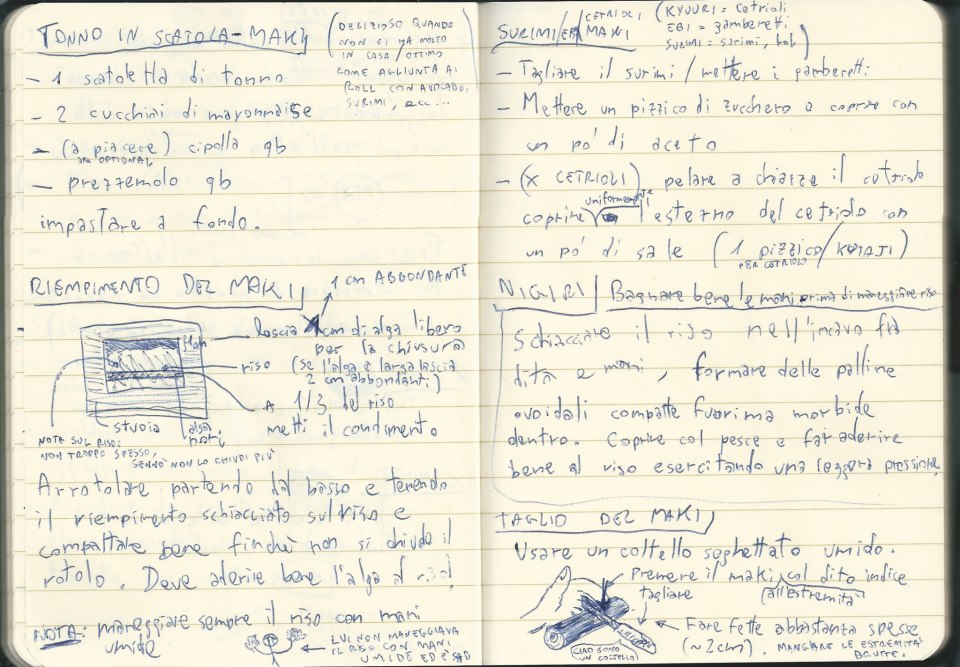 TONNO IN SCATOLA-MAKI
(DELIZIOSO QUANDO
NON SI HA MOLTO
IN CASA / OTTIMO
COME AGGIUNTA AI
ROLL CON AVOCADO,
SURIMI, ecc...
- 1 scatoletta di tonno
- 2 cucchiai di mayonnaise
- (a piacere) cipolla qb
OPTIONAL
- prezzemolo qb
impastare a fondo.
RIEMPIMENTO DEL MAKI
1 cm ABBONDANTE
lascia cm di alga libero
per la chiusura
riso (se l'alga è larga lascia
2 cm abbondanti)
A 1/3 del riso
metti il condimento
studia
alga
nori
NOTA SUL RISO:
NON TROPPO SPESSO,
SENNÒ NON LO CHIUDI PIÙ
Arrotolare partendo dal basso e tenendo
il riempimento schiacciato sul riso e
compattare bene finchè non si chiude il
rotolo. Deve aderire bene l'alga al riso!
NOTA: maneggiare sempre il riso con mani
umide
LUI NON MANEGGIAVA
IL RISO CON MANI
UMIDE ED È SAD
SURIMI/EBI/CETRIOLI MAKI
(KYUURI = cetrioli
EBI = gamberetti
SURIMI = surimi, lol)
- Tagliare il surimi / mettere i gamberetti
- Mettere un pizzico di zucchero a coprire con
un pò di aceto
- (X CETRIOLI) pelare a chiazze il cetriolo
coprire uniformemente l'esterno del cetriolo con
un pò di sale (1 pizzico/
PER CETRIOLO
NIGIRI Bagnare bene le mani prima di maneggiare riso
Schiacciare il riso nell'incavo fra
dita e mani, formare delle palline
ovoidali compatte fuori ma morbide
dentro. Coprire col pesce e far aderire
bene al riso esercitando una leggera pressione.
TAGLIO DEL MAKI
Usare un coltello seghettato umido.
Premere il maki col dito indice
(all'estremità
tagliare
Fare fette abbastanza spesse
(~2cm). MANGIARE LE ESTREMITÀ
BRUTTE.
CIAO SONO
UN COLTELLO!